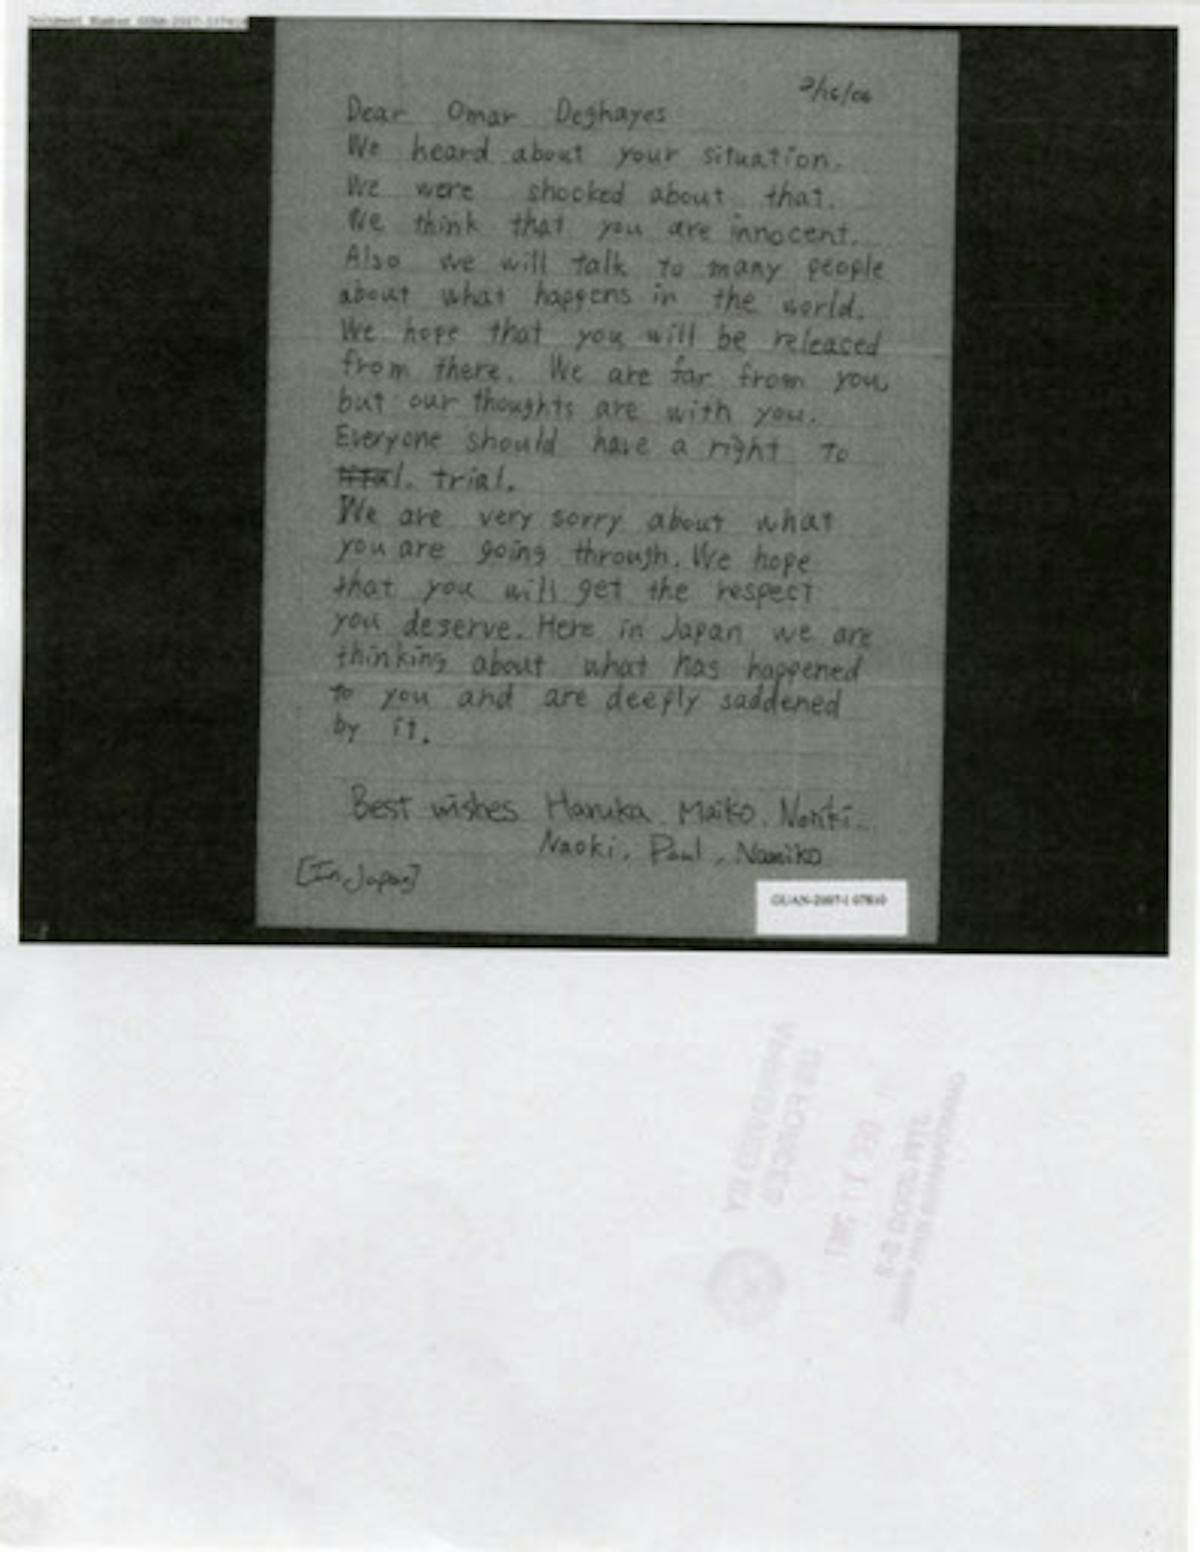 Dear Omar Deghayes
We heard about your situation.
We were shocked about that.
We think that you are innocent.
Also we will talk to many people
about what happens in the world.
We hope that you will be released
from there. We are far from you,
but our thoughts are with you.
Everyone should have a right to
trial.
We are very sorry about what
you are going through. We hope
that you will get the respect
you deserve. Here in Japan we are
thinking about what has happened
to you and are deeply saddened
by it.
Best wishes Haruka. Maiko.
Naoki, Paul, Namiko
[In Japan]
US FORCES
REVIEWED BY